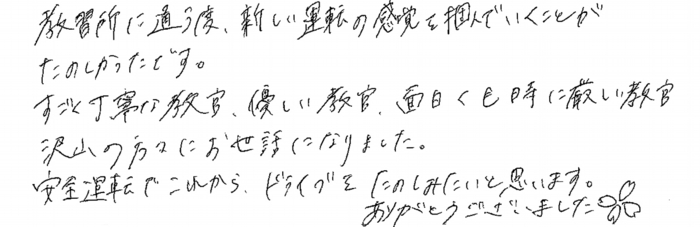 教習所に通う度、新しい運転の感覚を掴んでいくことが
たのしかったです。
すごく丁寧な教官、優しい教官、面白くも時に厳しい教官
沢山の方々にお世話になりました。
安全運転でこれから、ドライブを たのしみたいと思います。
ありがとうございました